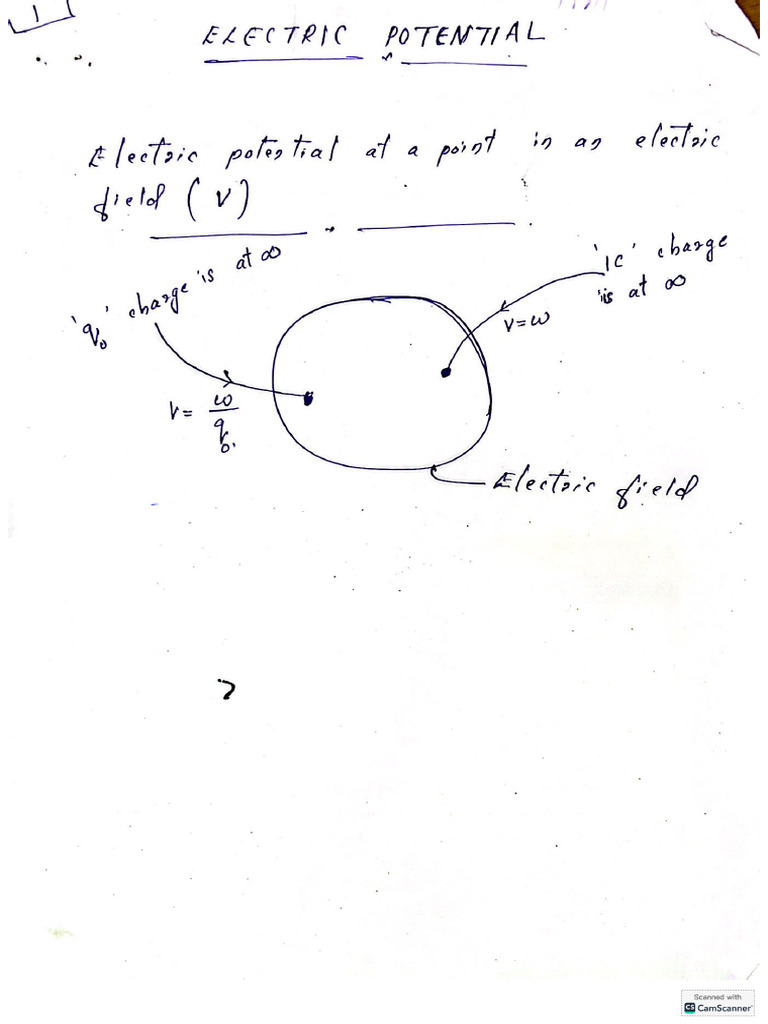 1
ELECTRIC POTENTIAL
Electric potential at a point in an electric
field (V)
'q₀' charge is at ∞
'1C' charge
is at ∞
V=W
V= W/q₀.
Electric field
Scanned with
CS CamScanner